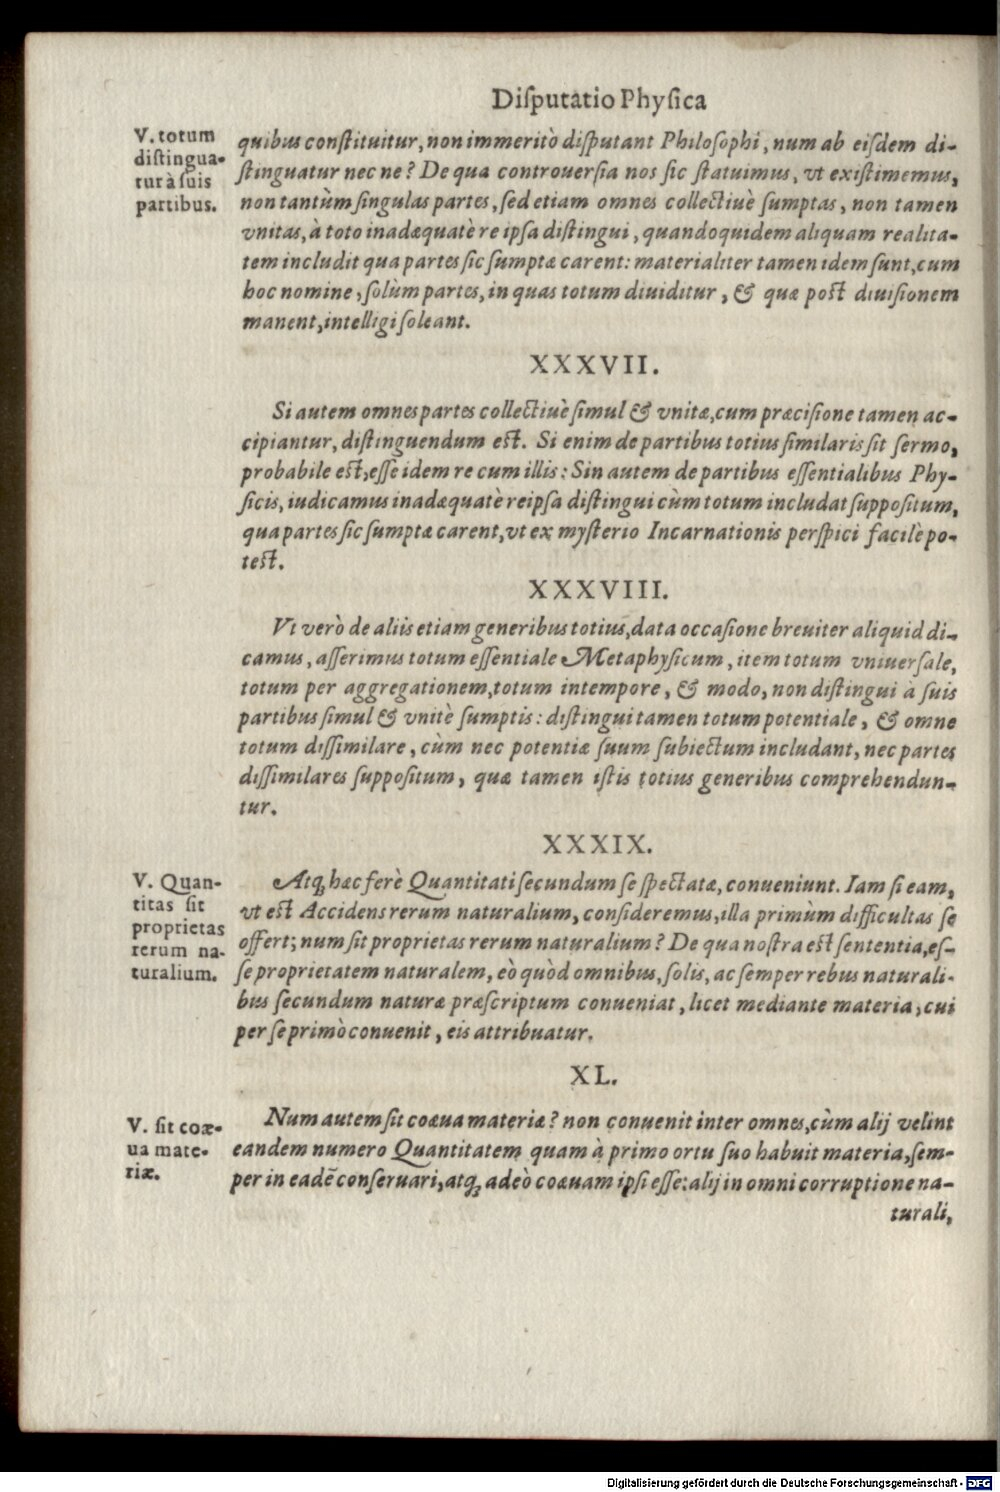 Diſputatio Phyſica
V. totum
diſtingua-
tur à ſuis
partibus.
quibus conſtituitur, non immeritò diſputant Philoſophi, num ab eiſdem di-
ſtinguatur nec ne? De qua controuerſia nos ſic ſtatuimus, vt exiſtimemus,
non tantùm ſingulas partes, ſed etiam omnes collectiuè ſumptas, non tamen
vnitas, à toto inadæquatè re ipſa diſtingui, quandoquidem aliquam realita-
tem includit qua partes ſic ſumptæ carent: materialiter tamen idem ſunt, cum
hoc nomine, ſolùm partes, in quas totum diuiditur, & quæ poſt diuiſionem
manent, intelligi ſoleant.
XXXVII.
Si autem omnes partes collectiuè ſimul & vnitæ, cum præciſione tamen ac-
cipiantur, diſtinguendum eſt. Si enim de partibus totius ſimilaris ſit ſermo,
probabile eſt, eſſe idem re cum illis: Sin autem de partibus eſſentialibus Phy-
ſicis, iudicamus inadæquatè reipſa diſtingui cùm totum includat ſuppoſitum,
qua partes ſic ſumptæ carent, vt ex myſterio Incarnationis perſpici facilè po-
teſt.
XXXVIII.
Vt verò de aliis etiam generibus totius, data occaſione breuiter aliquid di-
camus, aſſerimus totum eſſentiale Metaphyſicum, item totum vniuerſale,
totum per aggregationem, totum in tempore, & modo, non diſtingui à ſuis
partibus ſimul & vnitè ſumptis: diſtingui tamen totum potentiale, & omne
totum diſſimilare, cùm nec potentiæ ſuum ſubiectum includant, nec partes
diſſimilares ſuppoſitum, quæ tamen iſtis totius generibus comprehendun-
tur.
XXXIX.
V. Quan-
titas ſit
proprietas
rerum na-
turalium.
Atq; hæc ferè Quantitati ſecundum ſe ſpectatæ, conueniunt. Iam ſi eam,
vt eſt Accidens rerum naturalium, conſideremus, illa primùm difficultas ſe
offert; num ſit proprietas rerum naturalium? De qua noſtra eſt ſententia, eſ-
ſe proprietatem naturalem, eò quòd omnibus, ſolis, ac ſemper rebus naturali-
bus ſecundum naturæ præſcriptum conueniat, licet mediante materia, cui
per ſe primò conuenit, eis attribuatur.
XL.
V. ſit coæ-
ua mate-
riæ.
Num autem ſit coæua materiæ? non conuenit inter omnes, cùm alij velint
eandem numero Quantitatem quam à primo ortu ſuo habuit materia, ſem-
per in eadē conſeruari, atq; adeò coæuam ipſi eſſe: alij in omni corruptione na-
turali,
Digitalisierung gefördert durch die Deutsche Forschungsgemeinschaft - DFG